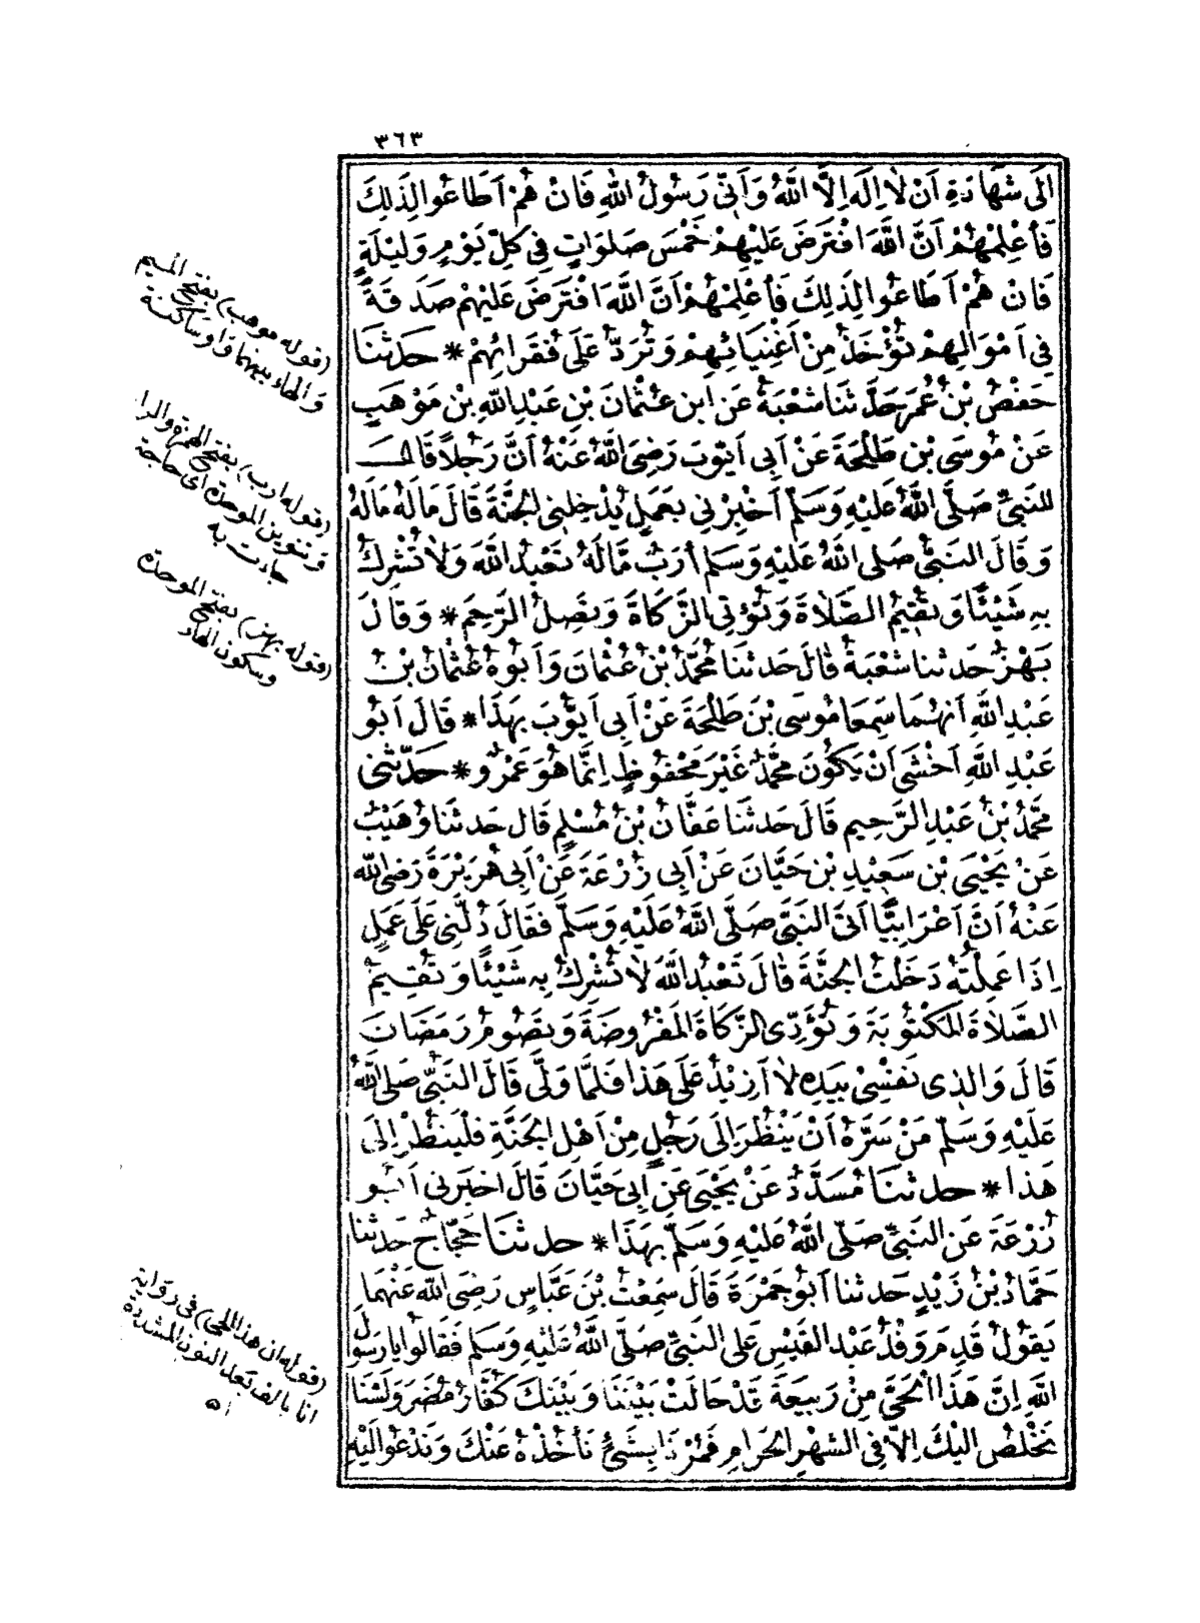 ٣٦٣
اِلَى شَهَادَةِ اَنْ لَا اِلَهَ اِلَّا اللَّهُ وَاَنِّى رَسُولُ اللهِ فَاِنْ هُمْ اَطَاعُوا لِذَلِكَ
فَأَعْلِمْهُمْ اَنَّ اللَّهَ افْتَرَضَ عَلَيْهِمْ خَمْسَ صَلَوَاتٍ فِى كُلِّ يَوْمٍ وَلَيْلَةٍ
فَاِنْ هُمْ اَطَاعُوا لِذَلِكَ فَأَعْلِمْهُمْ اَنَّ اللَّهَ افْتَرَضَ عَلَيْهِمْ صَدَقَةً
فِى اَمْوَالِهِمْ تُؤْخَذُ مِنْ اَغْنِيَائِهِمْ وَتُرَدُّ عَلَى فُقَرَائِهِمْ * حَدَّثَنَا
حَفْصُ بْنُ عُمَرَ حَدَّثَنَا شُعْبَةُ عَنِ ابْنِ عُثْمَانَ بْنِ عَبْدِ اللهِ بْنِ مَوْهَبٍ
عَنْ مُوسَى بْنِ طَلْحَةَ عَنْ اَبِى اَيُّوبَ رَضِىَ اللَّهُ عَنْهُ اَنَّ رَجُلًا قَالَ
لِلنَّبِىِّ صَلَّى اللَّهُ عَلَيْهِ وَسَلَّمَ اَخْبِرْنِى بِعَمَلٍ يُدْخِلُنِى الْجَنَّةَ قَالَ مَالَهُ مَالَهُ
وَقَالَ النَّبِىُّ صَلَّى اللَّهُ عَلَيْهِ وَسَلَّمَ أَرَبٌ مَّالَهُ تَعْبُدُ اللَّهَ وَلَا تُشْرِكُ
بِهِ شَيْئًا وَتُقِيمُ الصَّلَاةَ وَتُؤْتِى الزَّكَاةَ وَتَصِلُ الرَّحِمَ * وَقَالَ
بَهْزٌ حَدَّثَنَا شُعْبَةُ قَالَ حَدَّثَنَا مُحَمَّدُ بْنُ عُثْمَانَ وَاَبُوهُ عُثْمَانُ بْنُ
عَبْدِ اللَّهِ اَنَّهُمَا سَمِعَا مُوسَى بْنَ طَلْحَةَ عَنْ اَبِى اَيُّوبَ بِهَذَا * قَالَ اَبُو
عَبْدِ اللَّهِ اَخْشَى اَنْ يَكُونَ مُحَمَّدٌ غَيْرَ مَحْفُوظٍ اِنَّمَا هُوَ عَمْرٌو * حَدَّثَنِى
مُحَمَّدُ بْنُ عَبْدِ الرَّحِيمِ قَالَ حَدَّثَنَا عَفَّانُ بْنُ مُسْلِمٍ قَالَ حَدَّثَنَا وُهَيْبٌ
عَنْ يَحْيَى بْنِ سَعِيدِ بْنِ حَيَّانَ عَنْ اَبِى زُرْعَةَ عَنْ اَبِى هُرَيْرَةَ رَضِىَ اللَّه
عَنْهُ اَنَّ اَعْرَابِيًّا اَتَى النَّبِىَّ صَلَّى اللَّهُ عَلَيْهِ وَسَلَّمَ فَقَالَ دُلَّنِى عَلَى عَمَلٍ
اِذَا عَمِلْتُهُ دَخَلْتُ الْجَنَّةَ قَالَ تَعْبُدُ اللَّهَ لَا تُشْرِكُ بِهِ شَيْئًا وَتُقِيمُ
الصَّلَاةَ الْمَكْتُوبَةَ وَتُؤَدِّى الزَّكَاةَ الْمَفْرُوضَةَ وَتَصُومُ رَمَضَانَ
قَالَ وَالَّذِى نَفْسِى بِيَدِهِ لَا اَزِيدُ عَلَى هَذَا فَلَمَّا وَلَّى قَالَ النَّبِىُّ صَلَّى اللَّهُ
عَلَيْهِ وَسَلَّمَ مَنْ سَرَّهُ اَنْ يَنْظُرَ اِلَى رَجُلٍ مِنْ اَهْلِ الْجَنَّةِ فَلْيَنْظُرْ اِلَى
هَذَا * حَدَّثَنَا مُسَدَّدٌ عَنْ يَحْيَى عَنْ اَبِى حَيَّانَ قَالَ اَخْبَرَنِى اَبُو
زُرْعَةَ عَنِ النَّبِىِّ صَلَّى اللَّهُ عَلَيْهِ وَسَلَّمَ بِهَذَا * حَدَّثَنَا حَجَّاجٌ حَدَّثَنَا
حَمَّادُ بْنُ زَيْدٍ حَدَّثَنَا اَبُو جَمْرَةَ قَالَ سَمِعْتُ بْنَ عَبَّاسٍ رَضِىَ اللَّه عَنْهُمَا
يَقُولُ قَدِمَ وَفْدُ عَبْدِ الْقَيْسِ عَلَى النَّبِىِّ صَلَّى اللَّهُ عَلَيْهِ وَسَلَّمَ فَقَالُوا يَا رَسُولَ
اللَّهِ اِنَّ هَذَا الْحَىَّ مِنْ رَبِيعَةَ قَدْ حَالَتْ بَيْنَنَا وَبَيْنَكَ كُفَّارُ مُضَرَ وَلَسْنَا
نَخْلُصُ اِلَيْكَ اِلَّا فِى الشَّهْرِ الْحَرَامِ فَمُرْنَا بِشَىْءٍ نَأْخُذُهُ عَنْكَ وَنَدْعُو اِلَيْهِ
(قوله موهب) بفتح الميم
والهاء بينهما واو ساكنة
(قوله ارب) بفتح الهمزة والراء
وتنوين الموحدة اى حاجة
جاءت به
(قوله بهز) بفتح الموحدة
وسكون الهاء
(قوله ان هذا الحى) فى رواية
انا بالف بعد النون المشددة
اه